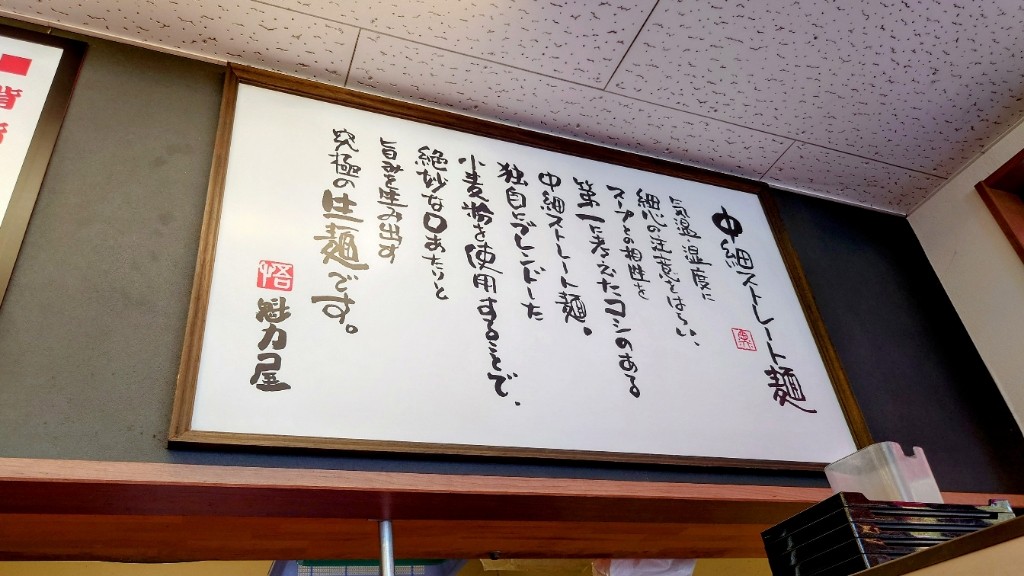 中細ストレート麺
気温、湿度に
細心の注意をはらい、
スープとの相性を
第一に考えたコシのある
中細ストレート麺。
独自にブレンドした
小麦粉を使用することで、
絶妙な口あたりと
旨みを産み出す
究極の生麺です。
悟
魁力屋
背